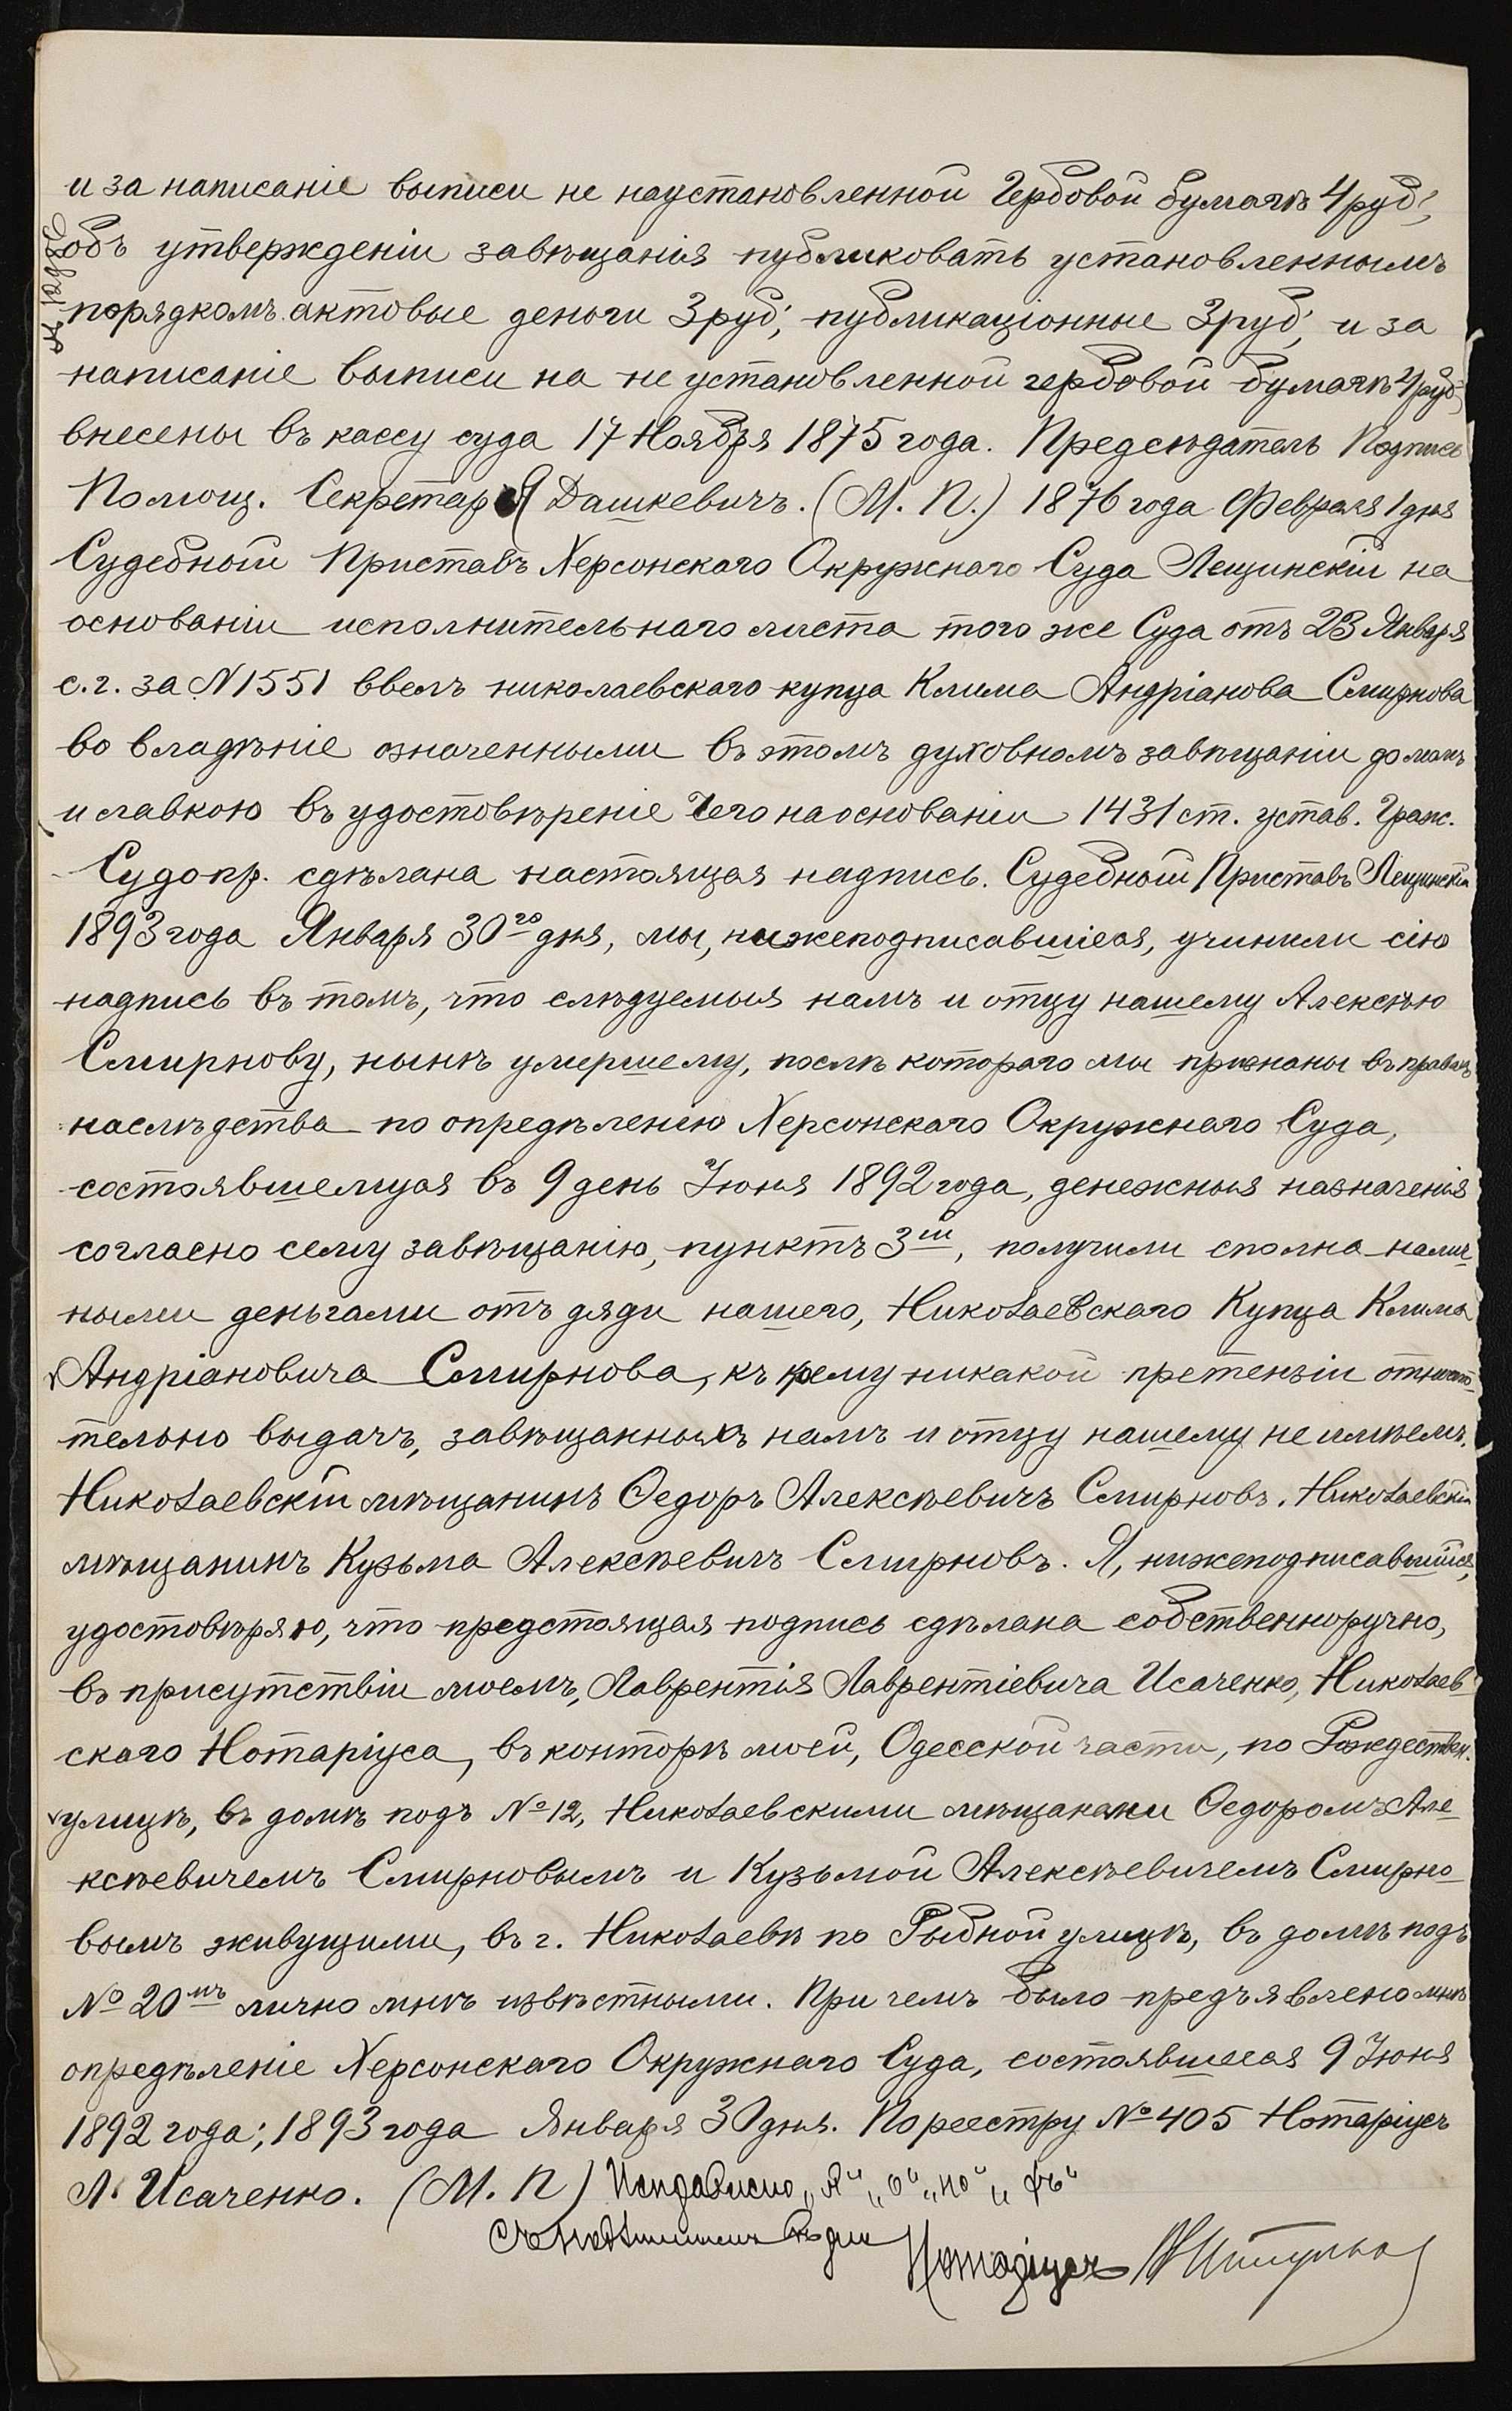 и за написаніе выписи не наустановленной Гербовой бумагѣ 4 руб.,
объ утвержденіи завѣщанія публиковать установленнымъ
порядкомъ. актовые деньги 3 руб., публикаціонные 3 руб., и за
написаніе выписи на не установленной гербовой бумагѣ 4 руб.,
внесены въ кассу суда 17 Ноября 1875 года. Предсѣдатель Подпись
Помощ. Секретаря Дашкевичъ. (М. П.) 1876 года Февраля 1 дня
Судебный Приставъ Херсонскаго Окружнаго Суда Лещинскій на
основаніи исполнительнаго листа того же Суда отъ 23 Января
с. г. за N 1551 ввелъ николаевскаго купца Клима Андріанова Смирнова
во владѣніе означенными въ этомъ духовномъ завѣщаніи домомъ
и лавкою въ удостовѣреніе чего на основаніи 1431 ст. устав. Граж.
Судопр. сдѣлана настоящая надпись. Судебный Приставъ Лещинскій
1893 года Января 30го дня, мы, нижеподписавшіеся, учинили сію
надпись въ томъ, что слѣдуемыя намъ и отцу нашему Алексѣю
Смирнову, нынѣ умершему, послѣ котораго мы признаны въ правахъ
наслѣдства по опредѣленію Херсонскаго Окружнаго Суда,
состоявшемуся въ 9 день Іюня 1892 года, денежныя назначенія
согласно сему завѣщанію, пунктъ 3й, получили сполна налич
ными деньгами отъ дяди нашего, Николаевскаго Купца Клима
Андріановича Смирнова, къ кему никакой претензіи относи
тельно выдачъ, завѣщанныхъ намъ и отцу нашему не имѣемъ.
Николаевскій мѣщанинъ Ѳедоръ Алексѣевичъ Смирновъ. Николаевскій
мѣщанинъ Кузьма Алексѣевичъ Смирновъ. Я, нижеподписавшійся,
удостовѣряю, что предстоящая подпись сдѣлана собственноручно,
въ присутствіи моемъ, Лаврентія Лаврентіевича Исаченко, Николаев
скаго Нотаріуса, въ конторѣ моей, Одесской части, по Рождествен.
улицѣ, въ домѣ подъ № 12, Николаевскими мѣщанами Ѳедоромъ Але-
ксѣевичемъ Смирновымъ и Кузьмой Алексѣевичемъ Смирно-
вымъ живущими, въ г. Николаевѣ по Рыбной улицѣ, въ домѣ подъ
№ 20мъ лично мнѣ извѣстными. При чемъ было предъявлено мнѣ
опредѣленіе Херсонскаго Окружнаго Суда, состоявшееся 9 Іюня
1892 года; 1893 года Января 30 дня. По реестру № 405 Нотаріусъ
Л. Исаченко. (М. П)
Нотаріусъ